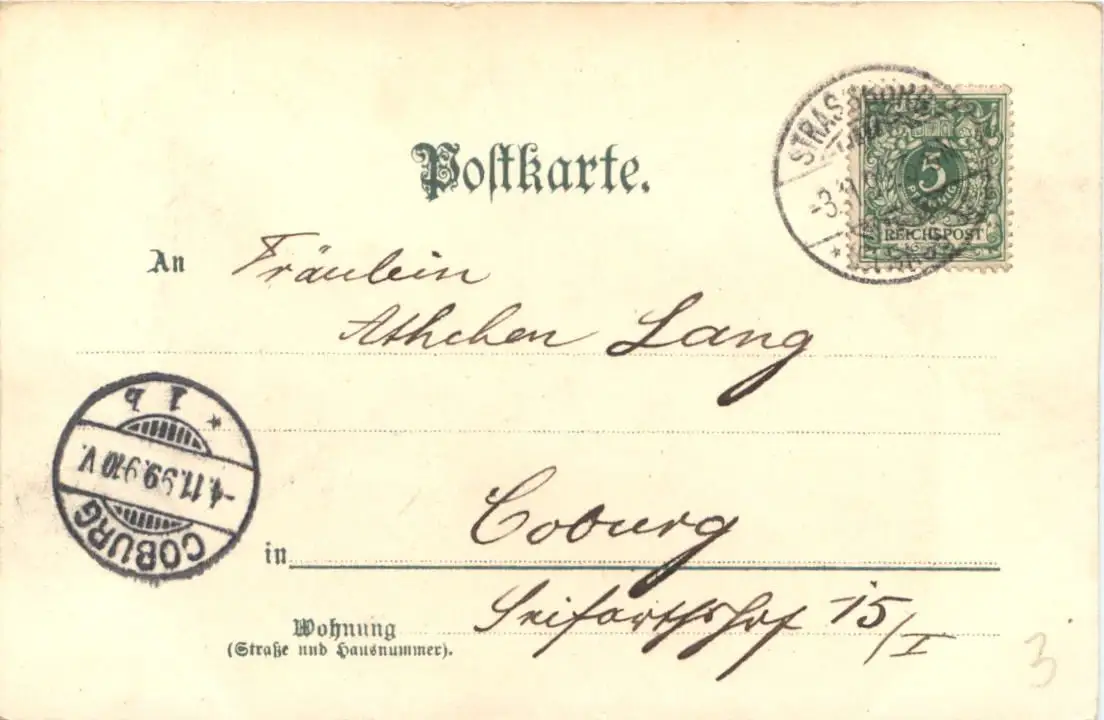 Postkarte.
STRASSBURG
-3.
5
PFENNIG
REICHSPOST
An Fräulein
Athchen Lang
* 1 b
-4.11.99.9-10 V.
COBURG
in Coburg
Wohnung Seifarthshof 15/I
(Straße und Hausnummer).
3